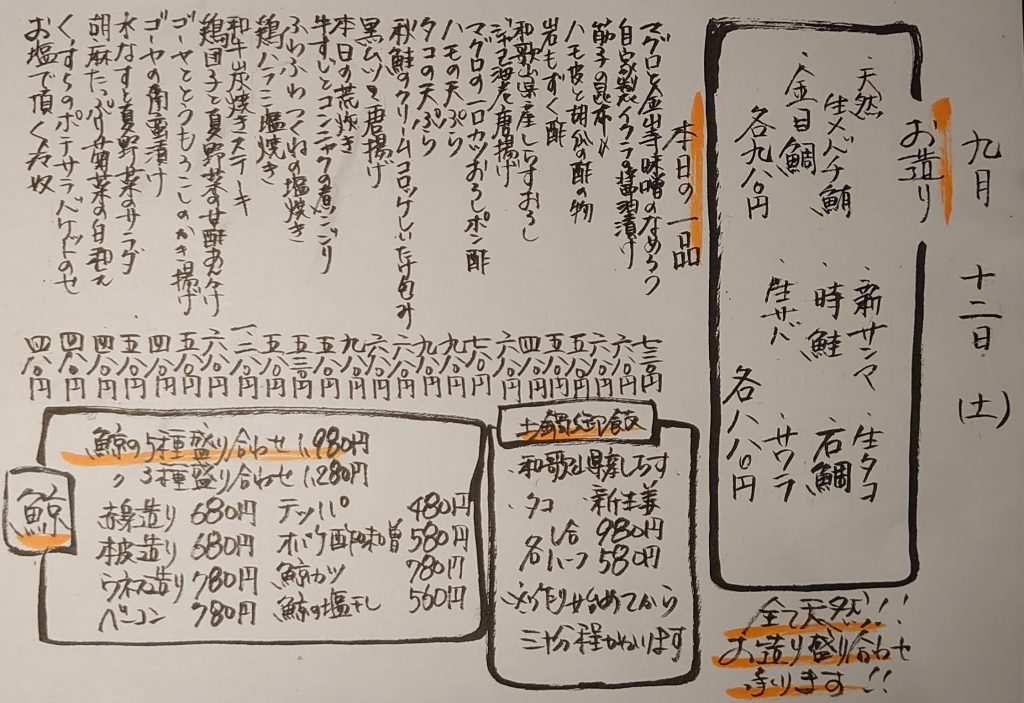 九月 十二日 (土)
お造り
天然
生メバチ鮪
・金目鯛
各九八〇円
・新サンマ ・生タコ
時鮭 ・石鯛
・生サバ ・サワラ
各八八〇円
全て天然!!
お造り盛り合わせ
承ります!!
本日の一品
マグロと金山寺味噌のなめろう 七三〇円
自家製イクラの醤油漬け 六八〇円
筋子の昆布〆 六八〇円
ハモ皮と胡瓜の酢の物 五八〇円
岩もずく酢 四八〇円
和歌山県産しらすおろし
ジャコ海老唐揚げ
マグロの一口カツおろしポン酢
ハモの天ぷら
タコの天ぷら
秋鮭のクリームコロッケしいたけ包み
黒ムツ唐揚げ
本日の荒炊き
牛すじとコンニャクの煮こごり
ふわふわつくねの塩焼き
鶏ハラミ塩焼き
和牛炭焼きステーキ
鶏団子と夏野菜の甘酢あんかけ
ゴーヤととうもろこしのかき揚げ
ゴーヤの南蛮漬け 四八〇円
水なすと夏野菜のサラダ 五八〇円
胡麻たっぷり菊菜の白和え 四八〇円
くずらのポテサラバケットのせ 四八〇円
お塩で頂く冷奴 四八〇円
土鍋御飯
・和歌山県産しらす
・タコ ・新生姜
1合 980円
各ハーフ 580円
※作り始めてから
三十分程かかります
鯨
鯨の5種盛り合わせ 1,980円
〃 3種盛り合わせ 1,280円
赤身造り 680円 テッパ 480円
本皮造り 680円 オバケ酢味噌 580円
ウネス造り 780円 鯨カツ 780円
ベーコン 780円 鯨の塩干し 560円